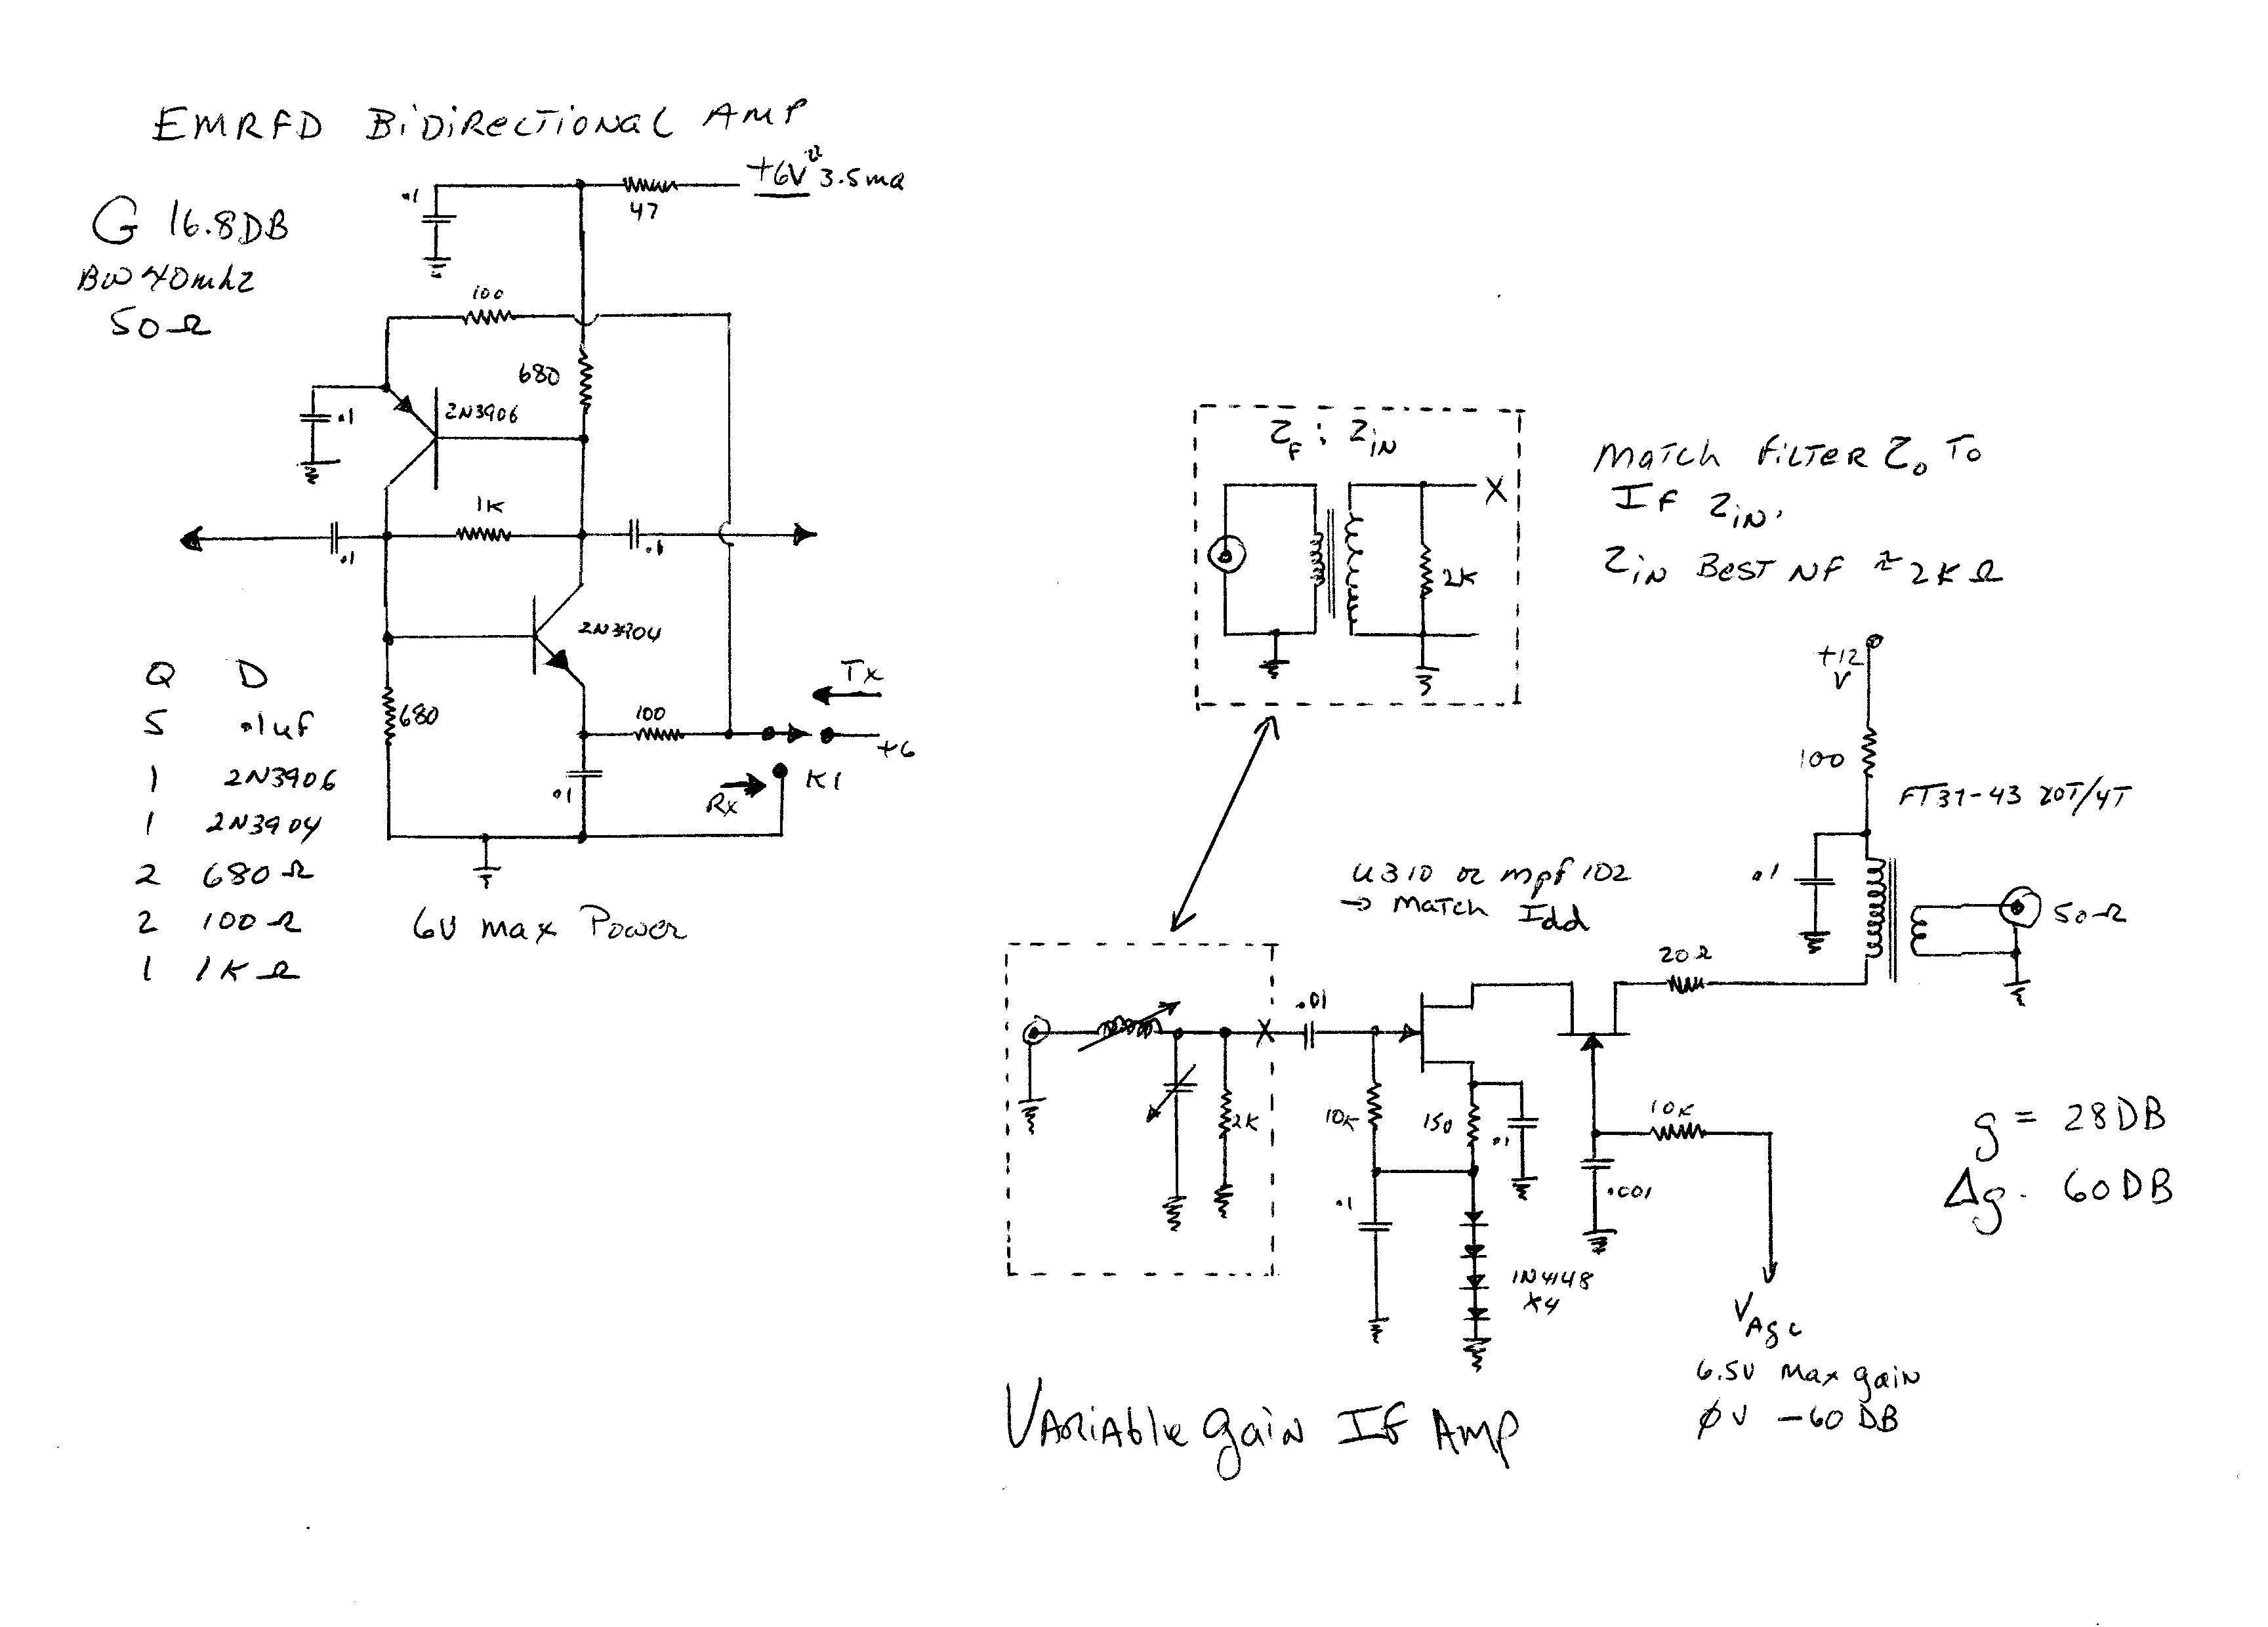 EMRFD BiDiRectional Amp
+6V @ 3.5ma
.1
47
G 16.8DB
BW 40mhz
50Ω
100
680
.1
2N3906
1K
.1
.1
2N3904
680
100
Tx
+6
.1
Rx
K1
Q D
5 .1uf
1 2N3906
1 2N3904
2 680Ω
2 100Ω
1 1KΩ
6V max Power
ZF : ZiN
X
2K
Match Filter Zo To
If ZiN.
ZiN Best NF ≈ 2KΩ
+12
V
100
FT37-43 20T/4T
.1
50Ω
U310 or mpf102
→ Match Idd
20Ω
.01
X
2K
10K
150
.1
.1
10K
.001
1N4148
x4
g = 28DB
Δg. 60DB
VAgc
6.5V Max gain
ØV -60 DB
VARiAble gain If Amp